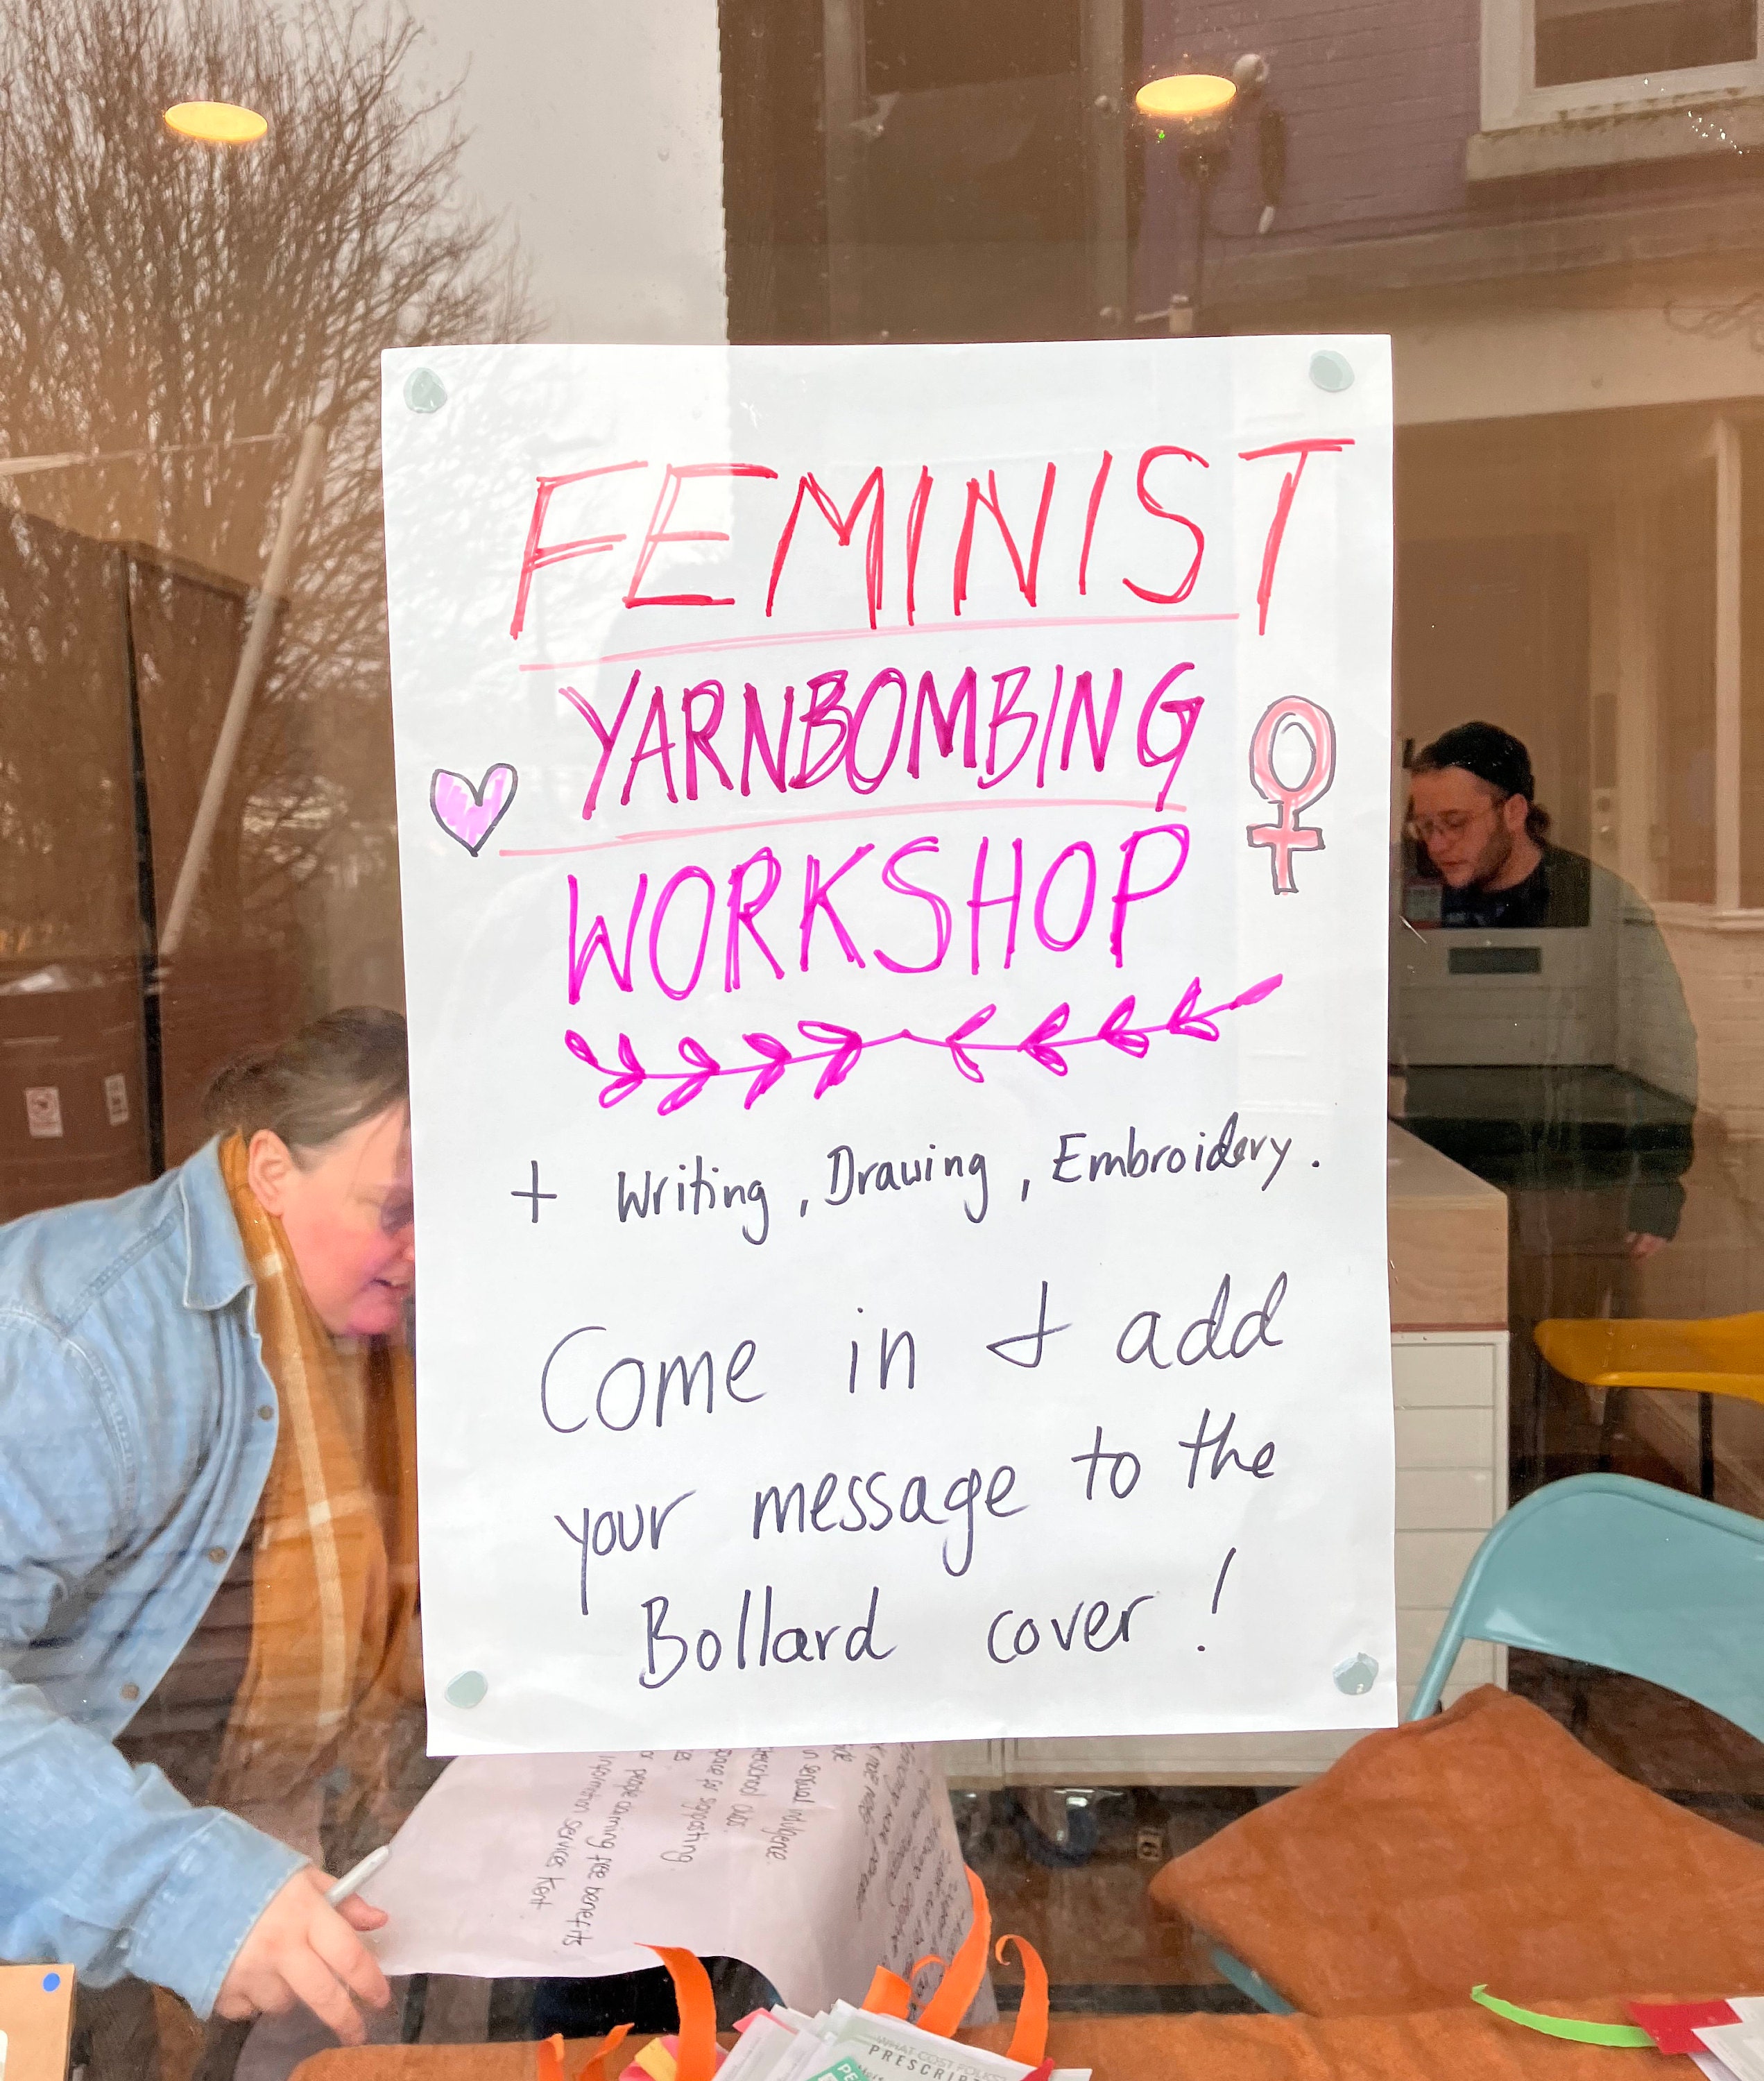 FEMINIST
YARNBOMBING
WORKSHOP
+ Writing, Drawing, Embroidery.
Come in & add
your message to the
Bollard cover!
sensual indulgence
space for supporting
people claiming free benefits
information services Kent
WHAT COST FOLKS?
PRESCRIPT